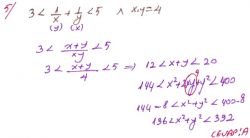 5) 3 < 1/x + 1/y < 5 ∧ x.y=4
(y) (x)
3 < x+y/xy < 5
3 < x+y/4 < 5 ⇒ 12 < x+y < 20
144 < x²+2xy+y² < 400
144-8 < x²+y² < 400-8
136 < x²+y² < 392